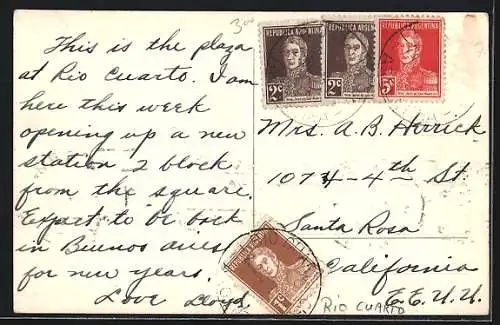 300
This is the plaza
at Rio Cuarto. I am
here this week
opening up a new
station 2 block
from the square.
Expect to be back
in Buenos aires
for new years.
Love Lloyd.
REPUBLICA ARGENTINA
2c
REPUBLICA ARGENTINA
2c
REPUBLICA ARGENTINA
5c
Mrs. A. B. Herrick
1074-4th St.
Santa Rosa
California
E.E.U.U.
REPUBLICA ARGENTINA
1c
RIO CUARTO